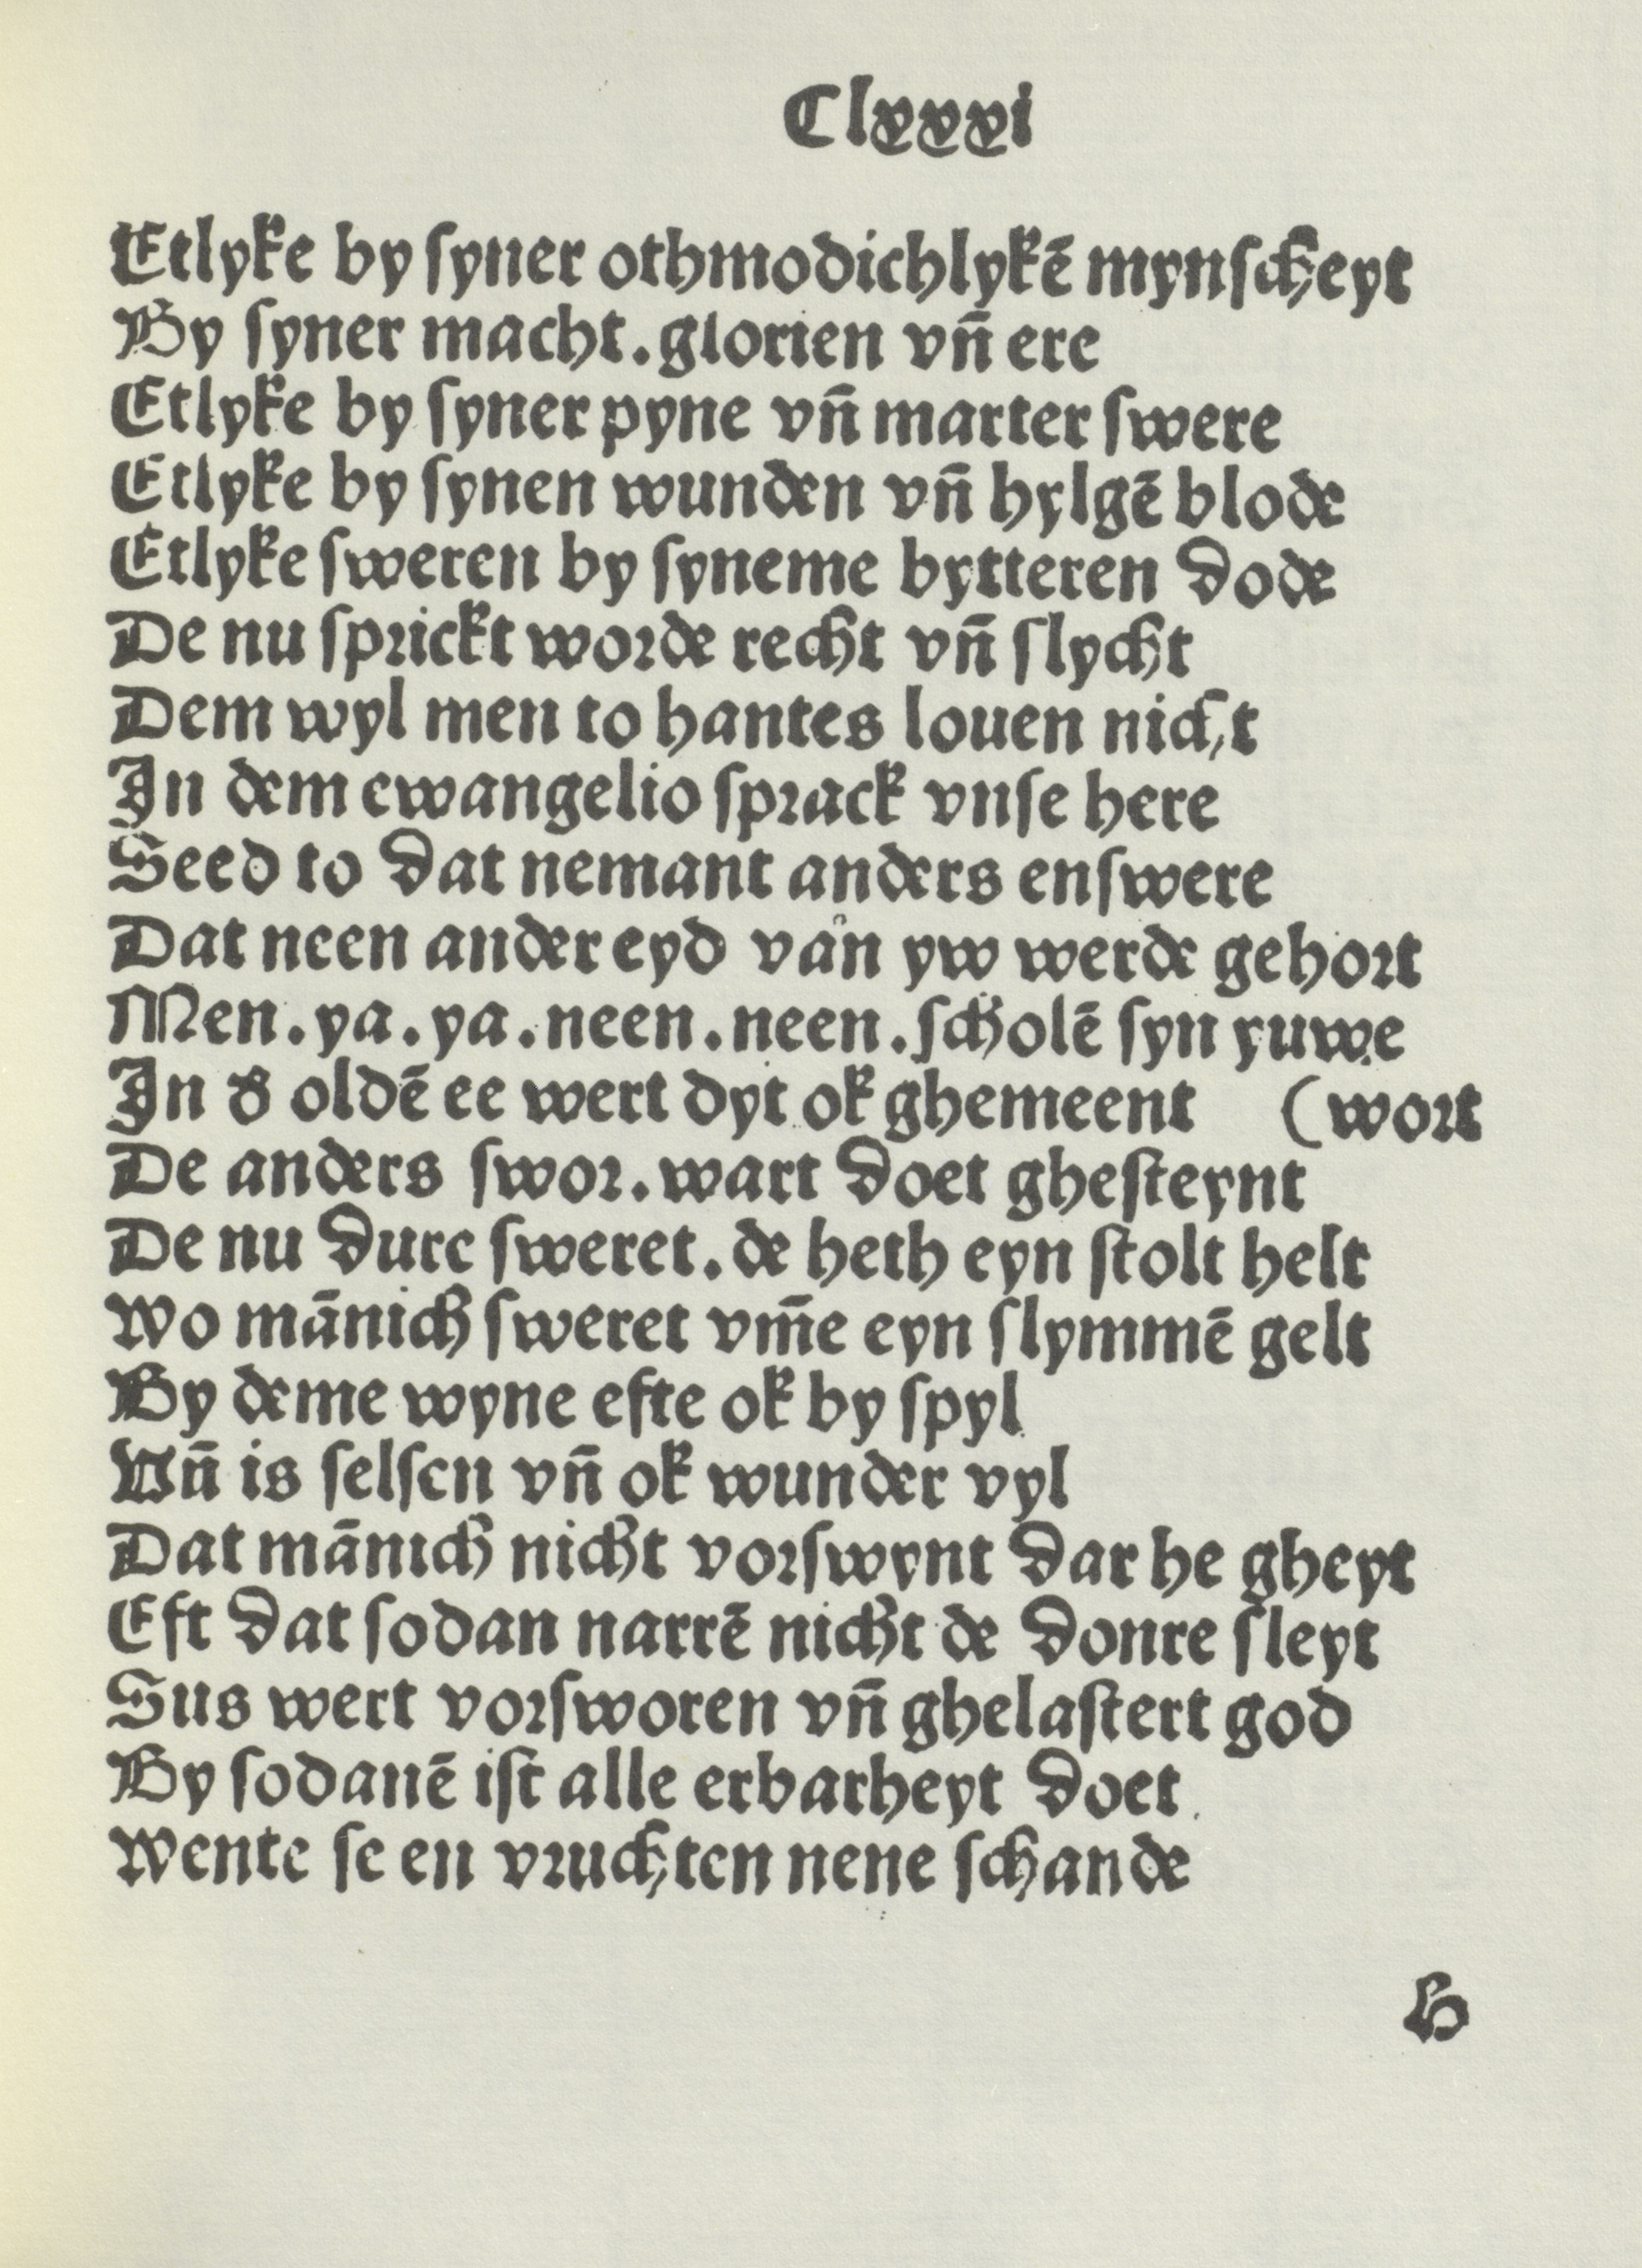 Clxxxi
Etlyke by ſyner othmodichlykē mynſcheyt
By ſyner macht. glorien vn̄ ere
Etlyke by ſyner pyne vn̄ marter ſwere
Etlyke by ſynen wunden vn̄ hylgē blode
Etlyke ſweren by ſyneme bytteren dode
De nu ſprickt worde recht vn̄ ſlycht
Dem wyl men to hantes louen nicht
In dem ewangelio ſprack vnſe here
Seed to dat nemant anders enſwere
Dat neen ander eyd van yw werde gehort
Men. ya. ya. neen. neen. ſcholē ſyn yuwe
In ð oldē ee wert dyt ok ghemeent (wort
De anders ſwor. wart doet gheſteynt
De nu dure ſweret. de heth eyn ſtolt helt
Wo mānich ſweret vm̄e eyn ſlymmē gelt
By deme wyne efte ok by ſpyl
Vn̄ is ſelſen vn̄ ok wunder vyl
Dat mānich nicht vorſwynt dar he gheyt
Eft dat ſodan narrē nicht de donre ſleyt
Sus wert vorſworen vn̄ ghelaſtert god
By ſodanē iſt alle erbarheyt doet
Wente ſe en vruchten nene ſchande